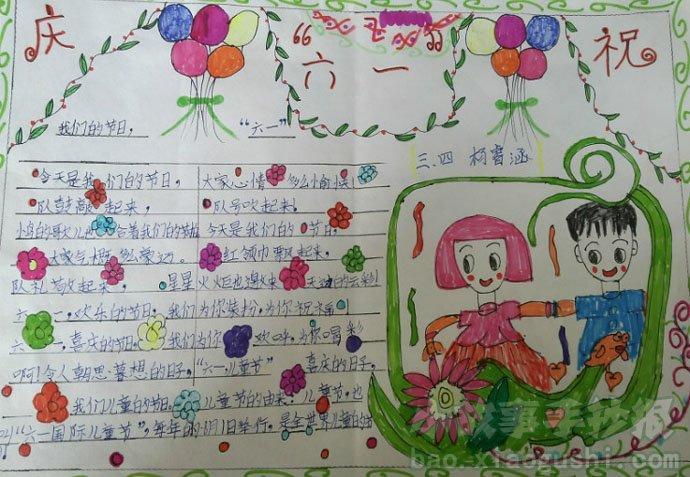 庆 “六一” 祝
我们的节日, “六一”
三.四 杨睿涵
今天是我们的节日, 大家心情 多么愉快!
队鼓敲起来, 队号吹起来!
着我们的节拍 今天是我们的节日,
红领巾飘起来,
队礼敬起来, 星星火炬 起来
六一, 欢乐的节日, 我们为你装扮, 为你祝福!
六一, 喜庆的节日, 我们为你欢呼, 为你喝彩
啊!令人朝思暮想的日子, “六一儿童节” 喜庆的日子,
我们儿童的节日。 儿童节的由来: 儿童节,也
叫“六一国际儿童节”, 每年的6月1日举行, 是全世界儿童的节
故事手抄报
bao.xiaogushi.com